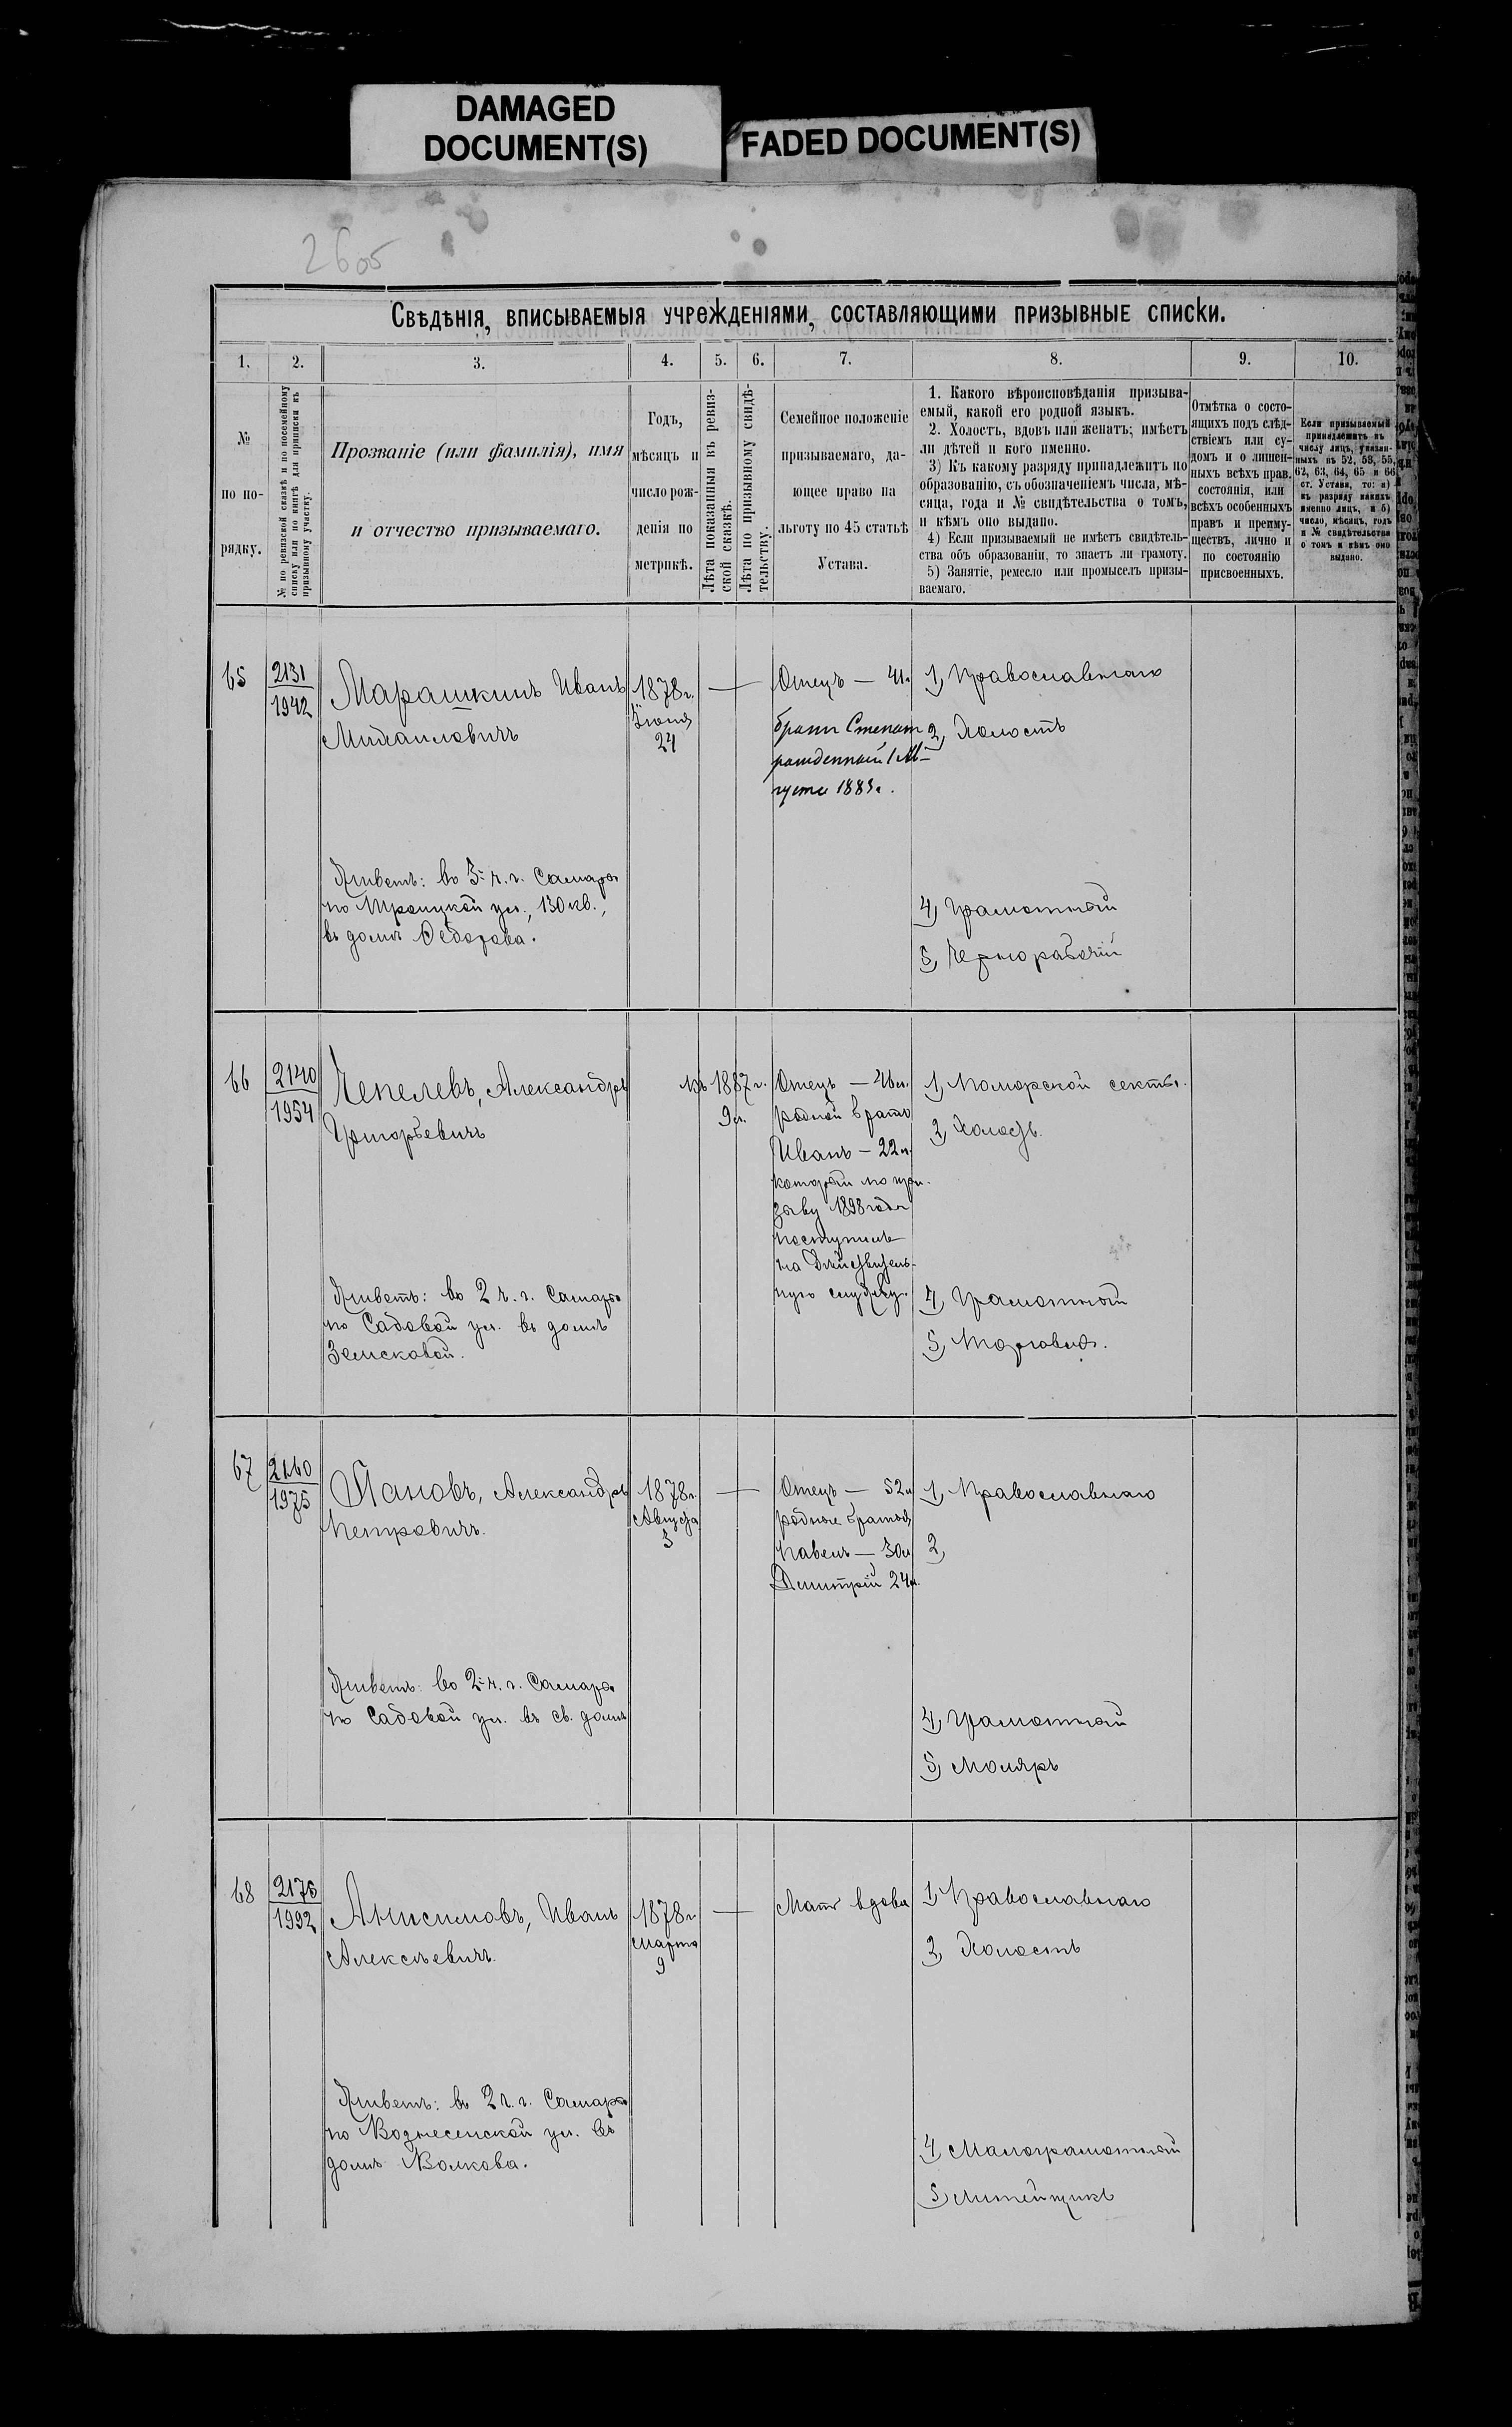 DAMAGED
DOCUMENT(S)
FADED DOCUMENT(S)
Свѣдѣнія, вписываемыя учрежденіями, составляющими призывные списки.
1. 2. 3. 4. 5. 6. 7. 8. 9. 10.
№
по по-
рядку.
№ по ревизской сказкѣ и по посемейному
списку или по книгѣ для приписки къ
призывному участку.
Прозваніе (или фамилія), имя
и отчество призываемаго.
Годъ,
мѣсяцъ и
число рож-
денія по
метрикѣ.
Лѣта показанныя въ ревиз-
ской сказкѣ.
Лѣта по призывному свидѣ-
тельству.
Семейное положеніе
призываемаго, да-
ющее право на
льготу по 45 статьѣ
Устава.
1. Какого вѣроисповѣданія призыва-
емый, какой его родной языкъ.
2. Холостъ, вдовъ или женатъ; имѣетъ
ли дѣтей и кого именно.
3) Къ какому разряду принадлежитъ по
образованію, съ обозначеніемъ числа, мѣ-
сяца, года и № свидѣтельства о томъ,
и кѣмъ оно выдано.
4) Если призываемый не имѣетъ свидѣтель-
ства объ образованіи, то знаетъ ли грамоту.
5) Занятіе, ремесло или промыселъ призы-
ваемаго.
Отмѣтка о состо-
ящихъ подъ слѣд-
ствіемъ или су-
домъ и о лишен-
ныхъ всѣхъ прав.
состоянія, или
всѣхъ особенныхъ
правъ и преиму-
ществъ, лично и
по состоянію
присвоенныхъ.
Если призываемый
принадлежитъ къ
числу лицъ, указан-
ныхъ въ 52, 53, 55,
62, 63, 64, 65 и 66
ст. Устава, то: а)
къ разряду какихъ
именно лицъ, и б)
число, мѣсяцъ, годъ
и № свидѣтельства
о томъ и кѣмъ оно
выдано.
65
2131
1942
Марашкинъ Иванъ
Михаиловичъ
Живетъ: во 3й ч. г. Самары
по Троицкой ул., 130 кв.,
въ домѣ Ѳедорова.
1878 г.
Іюня
24
Отецъ — 41 л
братъ Степанъ
рожденный 1 Ав-
густа 1883 г.
1, Православнаго
2, Холостъ
4, Грамотный
5, Чернорабочій
66
2140
1954
Чепелевъ, Александръ
Григорьевичъ
Живетъ: во 2 ч. г. Самары
по Садовой ул. въ домѣ
Земсковой.
въ 1887 г.
9 л.
Отецъ — 46 л.
родной братъ
Иванъ — 22 л.
который по при-
зыву 1898 года
поступилъ
на Дѣйствитель-
ную службу.
1, Поморской секты.
2, Холостъ.
4, Грамотный
5, Торговля.
67
2160
1975
Пановъ, Александръ
Петровичъ.
Живетъ: во 2й ч. г. Самары
по Садовой ул. въ св. домѣ
1878 г.
Августа
3
Отецъ — 52 л
родные братья
Павелъ — 30 л
Дмитрій 24 л.
1, Православнаго
2,
4, Грамотный
5, Моляръ
68
2176
1992
Анисимовъ, Иванъ
Алексѣевичъ.
Живетъ: во 2 ч. г. Самары
по Вознесенской ул. въ
домѣ Волкова.
1878 г
Марта
9
Мать вдова
1, Православнаго
2, Холостъ
4, Малограмотный
5, Литейщикъ